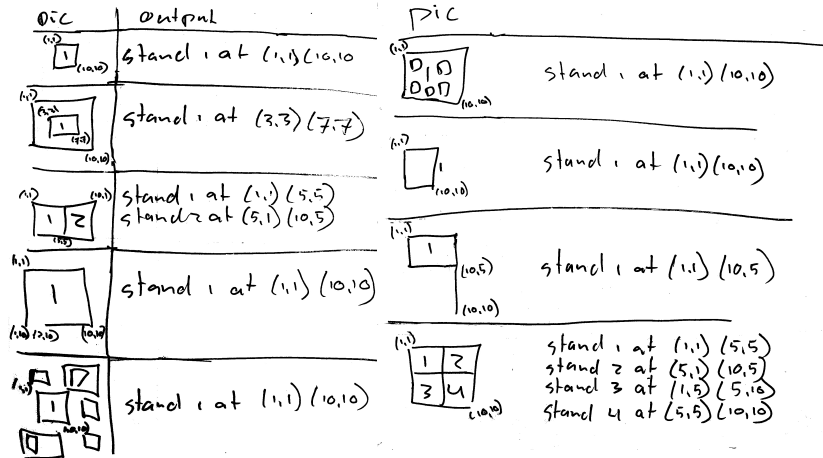 pic output
(1,1)
1
(10,10)
stand 1 at (1,1)(10,10
(1,1)
(3,3)
1
(7,7)
(10,10)
stand 1 at (3,3)(7,7)
(1,1) (10,1)
1 2
(5,5)
stand 1 at (1,1)(5,5)
stand 2 at (5,1)(10,5)
(1,1)
1
(1,10) (2,10) (10,10)
stand 1 at (1,1)(10,10)
(1,1)
1
(10,10)
stand 1 at (1,1)(10,10)
pic
(1,1)
1
(10,10)
stand 1 at (1,1)(10,10)
(1,1)
1
(10,10)
stand 1 at (1,1)(10,10)
(1,1)
1
(10,5)
(10,10)
stand 1 at (1,1)(10,5)
(1,1)
1 2
3 4
(10,10)
stand 1 at (1,1)(5,5)
stand 2 at (5,1)(10,5)
stand 3 at (1,5)(5,10
stand 4 at (5,5)(10,10)